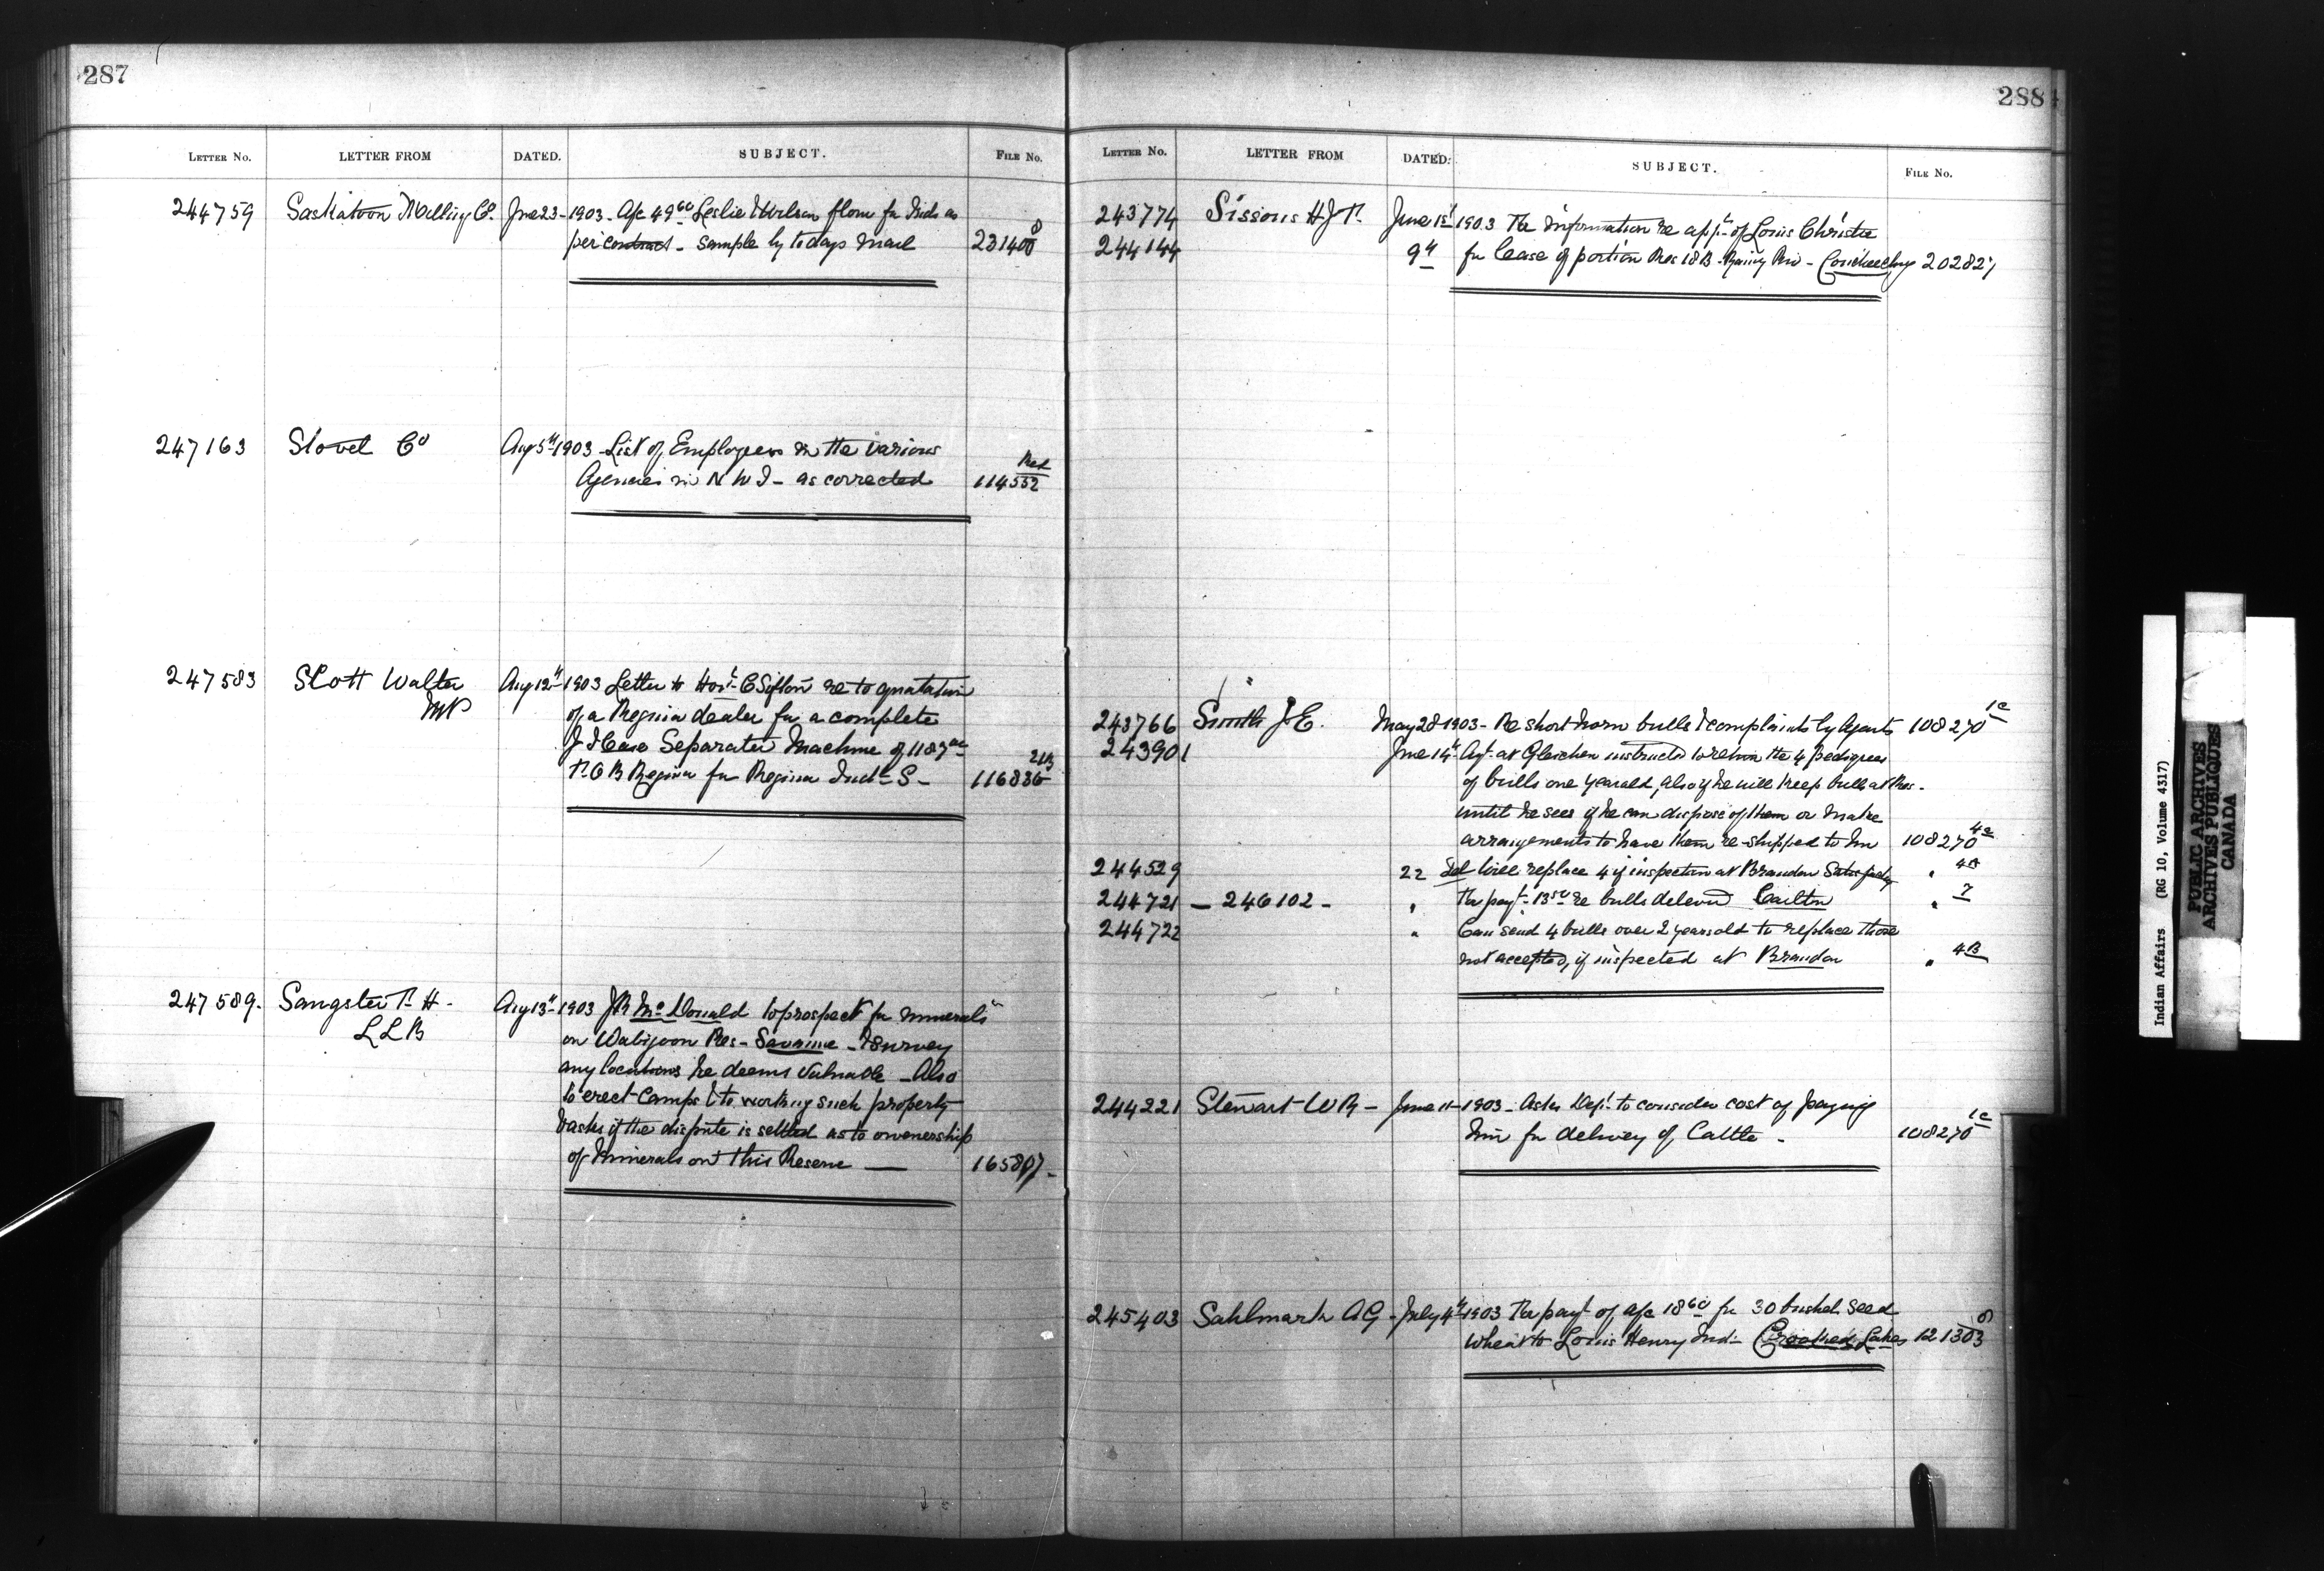 287
LETTER No. LETTER FROM DATED. SUBJECT. FILE No.
244759 Saskatoon Milling Co. June 23 - 1903 - A/c 49 60 Leslie & Wilson flour for Inds as
per contract - sample by todays mail 231400 8
247163 Stovel Co Aug 5th 1903 - List of Employees in the various
Agencies in N W T - as corrected 114552 Ret
247583 Scott Walter Aug 12th 1903 Letter to Honl C Sifton re to quotation
MP of a Regina dealer for a complete
J I Case Separator Machine of 1187 00
F.O.B Regina for Regina Indl S - 116836 21B
247589. Sangster P. H - Aug 13th 1903 JR McDonald to prospect for minerals
L L B on Wabigoon Res - Savanne - & survey
any locations he deems valuable - Also
to erect Camps & to working such property
& asks if the dispute is settled as to ownership
of minerals on this Reserve — 165807 -
288
LETTER No. LETTER FROM DATED. SUBJECT. FILE No.
243774 Sissons H J F. June 1st 1903 For information re appn of Louis Christie
244144 9th for lease of portion Res 18B - Rainy Riv - Couchiching 202827
243766 Smith J E. May 28 1903 - Re short horn bulls & complaints by Agents 108270 1c
243901 June 14th Agt at Gleichen instructed to return the 4 pedigrees
of bulls one year old, also if he will keep bulls at Res -
until he sees if he can dispose of them or make
arrangements to have them re-shipped to him 108270 4a
244529 22 Tel will replace 4 if inspection at Brandon Satisfactory " 4A
244721 — 246102 - " For payt 13 50 re bulls delevd Carlton " 7
244722 " Can send 4 bulls over 2 years old to replace those
not accepted, if inspected at Brandon " 4B
244221 Stewart W R - June 11 - 1903 - Asks Dept. to consider cost of paying
him for delivery of Cattle - 108270 1c
245403 Sahlmark A G - July 4th 1903 For payt of a/c 18 60 for 30 bushel seed
wheat to Louis Henry Ind - Crooked Lakes 121303 8
Indian Affairs (RG 10, Volume 4317)
PUBLIC ARCHIVES
ARCHIVES PUBLIQUES
CANADA